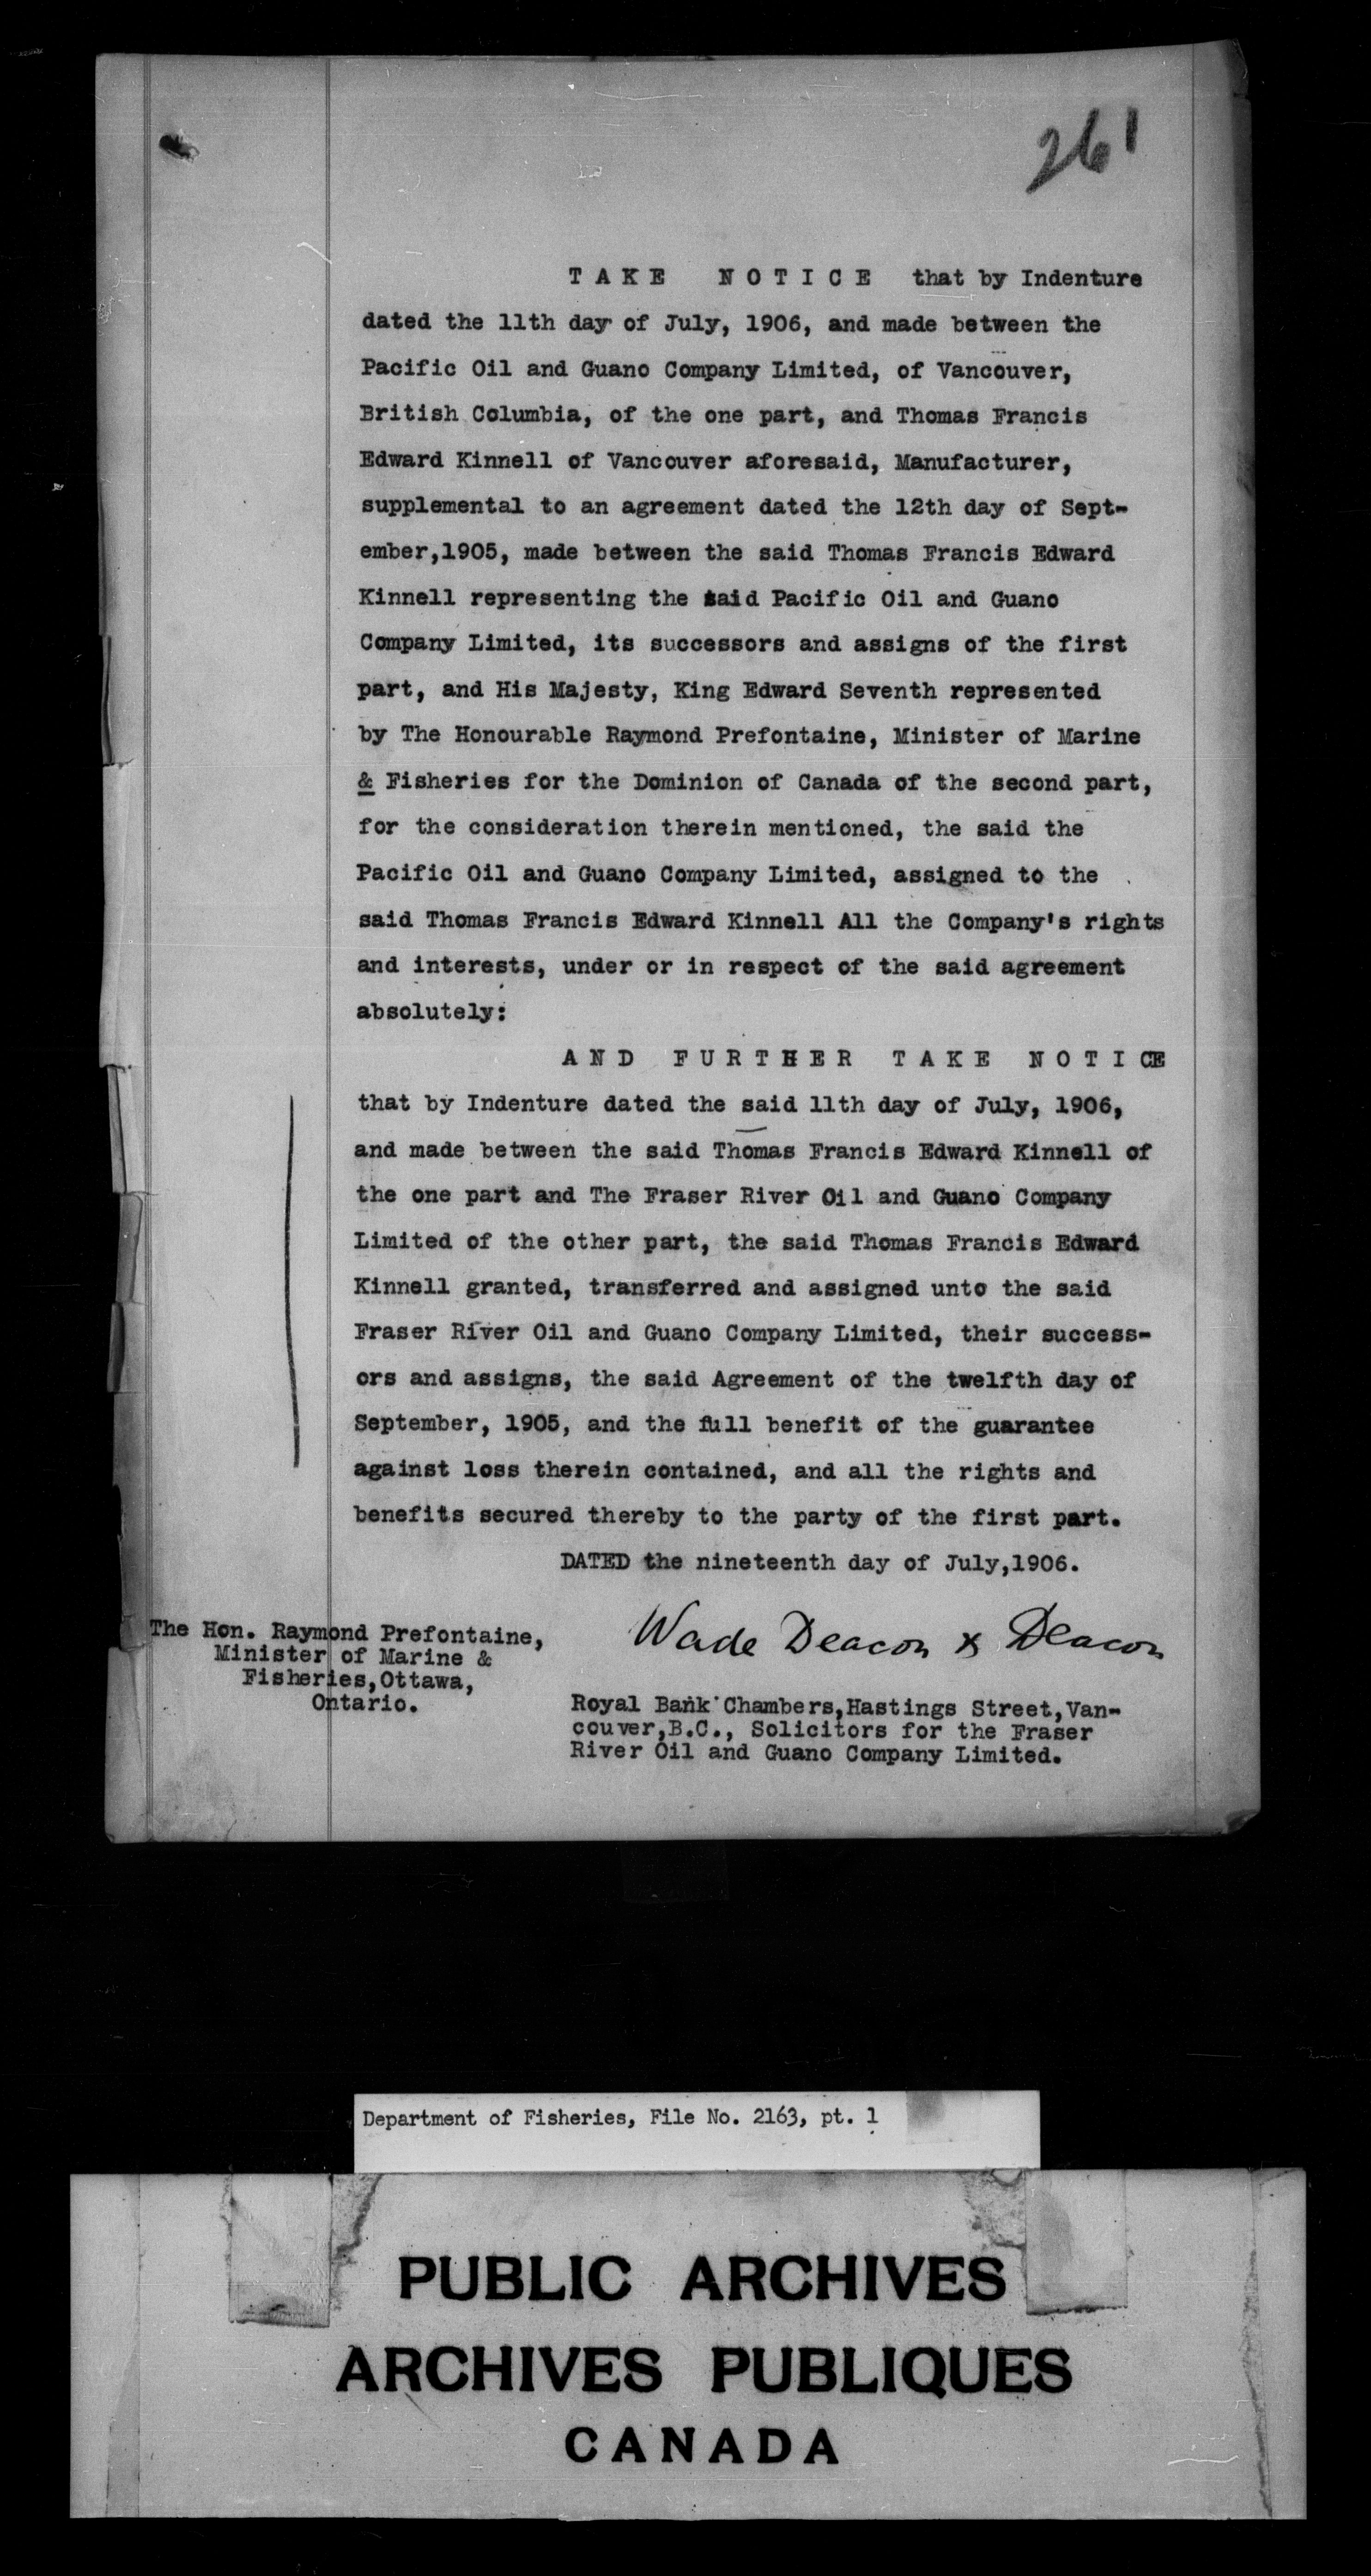 261
T A K E N O T I C E that by Indenture
dated the 11th day of July, 1906, and made between the
Pacific Oil and Guano Company Limited, of Vancouver,
British Columbia, of the one part, and Thomas Francis
Edward Kinnell of Vancouver aforesaid, Manufacturer,
supplemental to an agreement dated the 12th day of Sept-
ember,1905, made between the said Thomas Francis Edward
Kinnell representing the said Pacific Oil and Guano
Company Limited, its successors and assigns of the first
part, and His Majesty, King Edward Seventh represented
by The Honourable Raymond Prefontaine, Minister of Marine
& Fisheries for the Dominion of Canada of the second part,
for the consideration therein mentioned, the said the
Pacific Oil and Guano Company Limited, assigned to the
said Thomas Francis Edward Kinnell All the Company's rights
and interests, under or in respect of the said agreement
absolutely:
A N D F U R T H E R T A K E N O T I CE
that by Indenture dated the said 11th day of July, 1906,
and made between the said Thomas Francis Edward Kinnell of
the one part and The Fraser River Oil and Guano Company
Limited of the other part, the said Thomas Francis Edward
Kinnell granted, transferred and assigned unto the said
Fraser River Oil and Guano Company Limited, their success-
ors and assigns, the said Agreement of the twelfth day of
September, 1905, and the full benefit of the guarantee
against loss therein contained, and all the rights and
benefits secured thereby to the party of the first part.
DATED the nineteenth day of July,1906.
Wade Deacon & Deacon
The Hon. Raymond Prefontaine,
Minister of Marine &
Fisheries,Ottawa,
Ontario.
Royal Bank Chambers,Hastings Street,Van-
couver,B.C., Solicitors for the Fraser
River Oil and Guano Company Limited.
Department of Fisheries, File No. 2163, pt. 1
PUBLIC ARCHIVES
ARCHIVES PUBLIQUES
CANADA